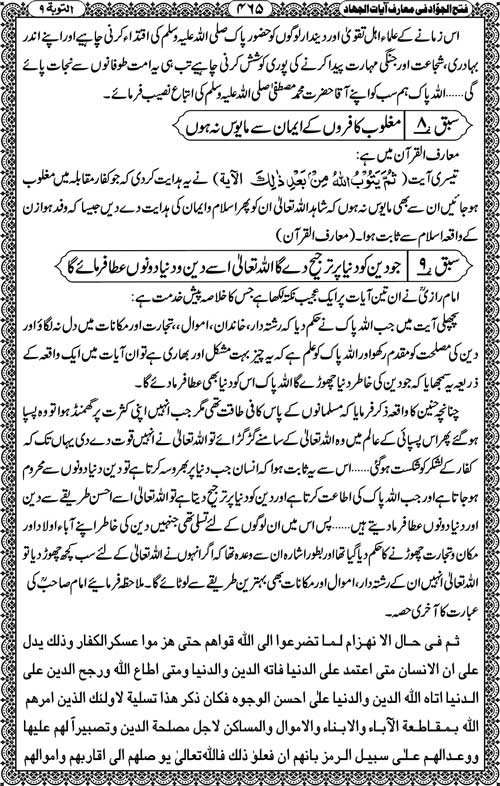 فتح الجوّاد فی معارف آیات الجھاد ۴۶۵ التوبة ۹
اس زمانے کے علماء اہل تقویٰ اور دیندار لوگوں کو حضور پاک صلی اللہ علیہ وسلم کی اقتداء کرنی چاہیے اور اپنے اندر
بہادری، شجاعت اور جنگی مہارت پیدا کرنے کی پوری کوشش کرنی چاہیے تب ہی یہ امت طوفانوں سے نجات پائے
گی…… اللہ پاک ہم سب کو اپنے آقا حضرت محمد مصطفیٰ صلی اللہ علیہ وسلم کی اتباع نصیب فرمائے۔
سبق ۸ مغلوب کافروں کے ایمان سے مایوس نہ ہوں
معارف القرآن میں ہے:
تیسری آیت (ثُمَّ یَتُوْبُ اللّٰہُ مِنْۢ بَعْدِ ذٰلِكَ الآیة) نے یہ ہدایت کردی کہ جو کفار مقابلہ میں مغلوب
ہو جائیں ان سے بھی مایوس نہ ہوں کہ شاہد اللہ تعالیٰ ان کو پھر اسلام و ایمان کی ہدایت دے دیں جیسا کہ وفد ہوازن
کے واقعہ اسلام سے ثابت ہوا۔ (معارف القرآن)
سبق ۹ جو دین کو دنیا پر ترجیح دے گا اللہ تعالیٰ اسے دین و دنیا دونوں عطا فرمائے گا
امام رازیؒ نے ان تین آیات پر ایک عجیب نکتہ لکھا ہے جس کا خلاصہ پیش خدمت ہے:
پچھلی آیت میں جب اللہ پاک نے حکم دیا کہ رشتہ دار، خاندان، اموال،، تجارت اور مکانات میں دل نہ لگاؤ اور
دین کی مصلحت کو مقدم رکھو اور اللہ پاک کو علم ہے کہ یہ چیز بہت مشکل اور بھاری ہے تو ان آیات میں ایک واقعہ کے
ذریعہ یہ سمجھایا کہ جو دین کی خاطر دنیا چھوڑے گا اللہ پاک اس کو دنیا بھی عطا فرمادے گا۔
چنانچہ حنین کا واقعہ ذکر فرمایا کہ مسلمانوں کے پاس کافی طاقت تھی مگر جب انہیں اپنی کثرت پر گھمنڈ ہوا تو وہ پسپا
ہوگئے پھر اس پسپائی کے عالم میں وہ اللہ تعالیٰ کے سامنے گڑگڑائے تو اللہ تعالیٰ نے انہیں قوت دے دی یہاں تک کہ
کفار کے لشکر کو شکست ہوگئی…… اس سے یہ ثابت ہوا کہ انسان جب دنیا پر بھروسہ کرتا ہے تو دین دنیا دونوں سے محروم
ہو جاتا ہے اور جب اللہ پاک کی اطاعت کرتا ہے اور دین کو دنیا پر ترجیح دیتا ہے تو اللہ تعالیٰ اسے احسن طریقے سے دین
اور دنیا دونوں عطا فرما دیتے ہیں…… پس اس میں ان لوگوں کے لئے تسلی تھی جنہیں دین کی خاطر اپنے آباء اولاد اور
مکان و تجارت چھوڑنے کا حکم دیا گیا تھا اور بطور اشارہ ان سے وعدہ تھا کہ اگر انہوں نے اللہ تعالیٰ کے لئے سب کچھ چھوڑ دیا تو
اللہ تعالیٰ انہیں ان کے رشتہ دار، اموال اور مکانات بھی بہترین طریقے سے لوٹائے گا۔ ملاحظہ فرمائیے امام صاحبؒ کی
عبارت کا آخری حصہ۔
ثم فی حال الانہزام لما تضرعوا الی اللّٰہ قواھم حتی ھزموا عسکر الکفار وذلك یدل
علی ان الانسان متی اعتمد علی الدنیا فاتہ الدین والدنیا ومتی اطاع اللّٰہ ورجح الدین علی
الدنیا اتاہ اللّٰہ الدین والدنیا علی احسن الوجوہ فکان ذکر ھذا تسلیة لاولئك الذین امرھم
اللّٰہ بمقاطعة الآباء والابناء والاموال والمساکن لاجل مصلحة الدین وتصبیراً لھم علیھا
ووعدالھم علی سبیل الرمز بانھم ان فعلوا ذلك فاللّٰہ تعالیٰ یوصلھم الی اقاربھم واموالھم